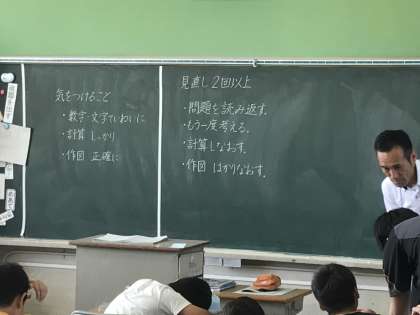 気をつけること
・数字・文字ていねいに
・計算しっかり
・作図 正確に
見直し2回以上
・問題を読み返す。
・もう一度考える。
・計算しなおす。
・作図 はかりなおす。